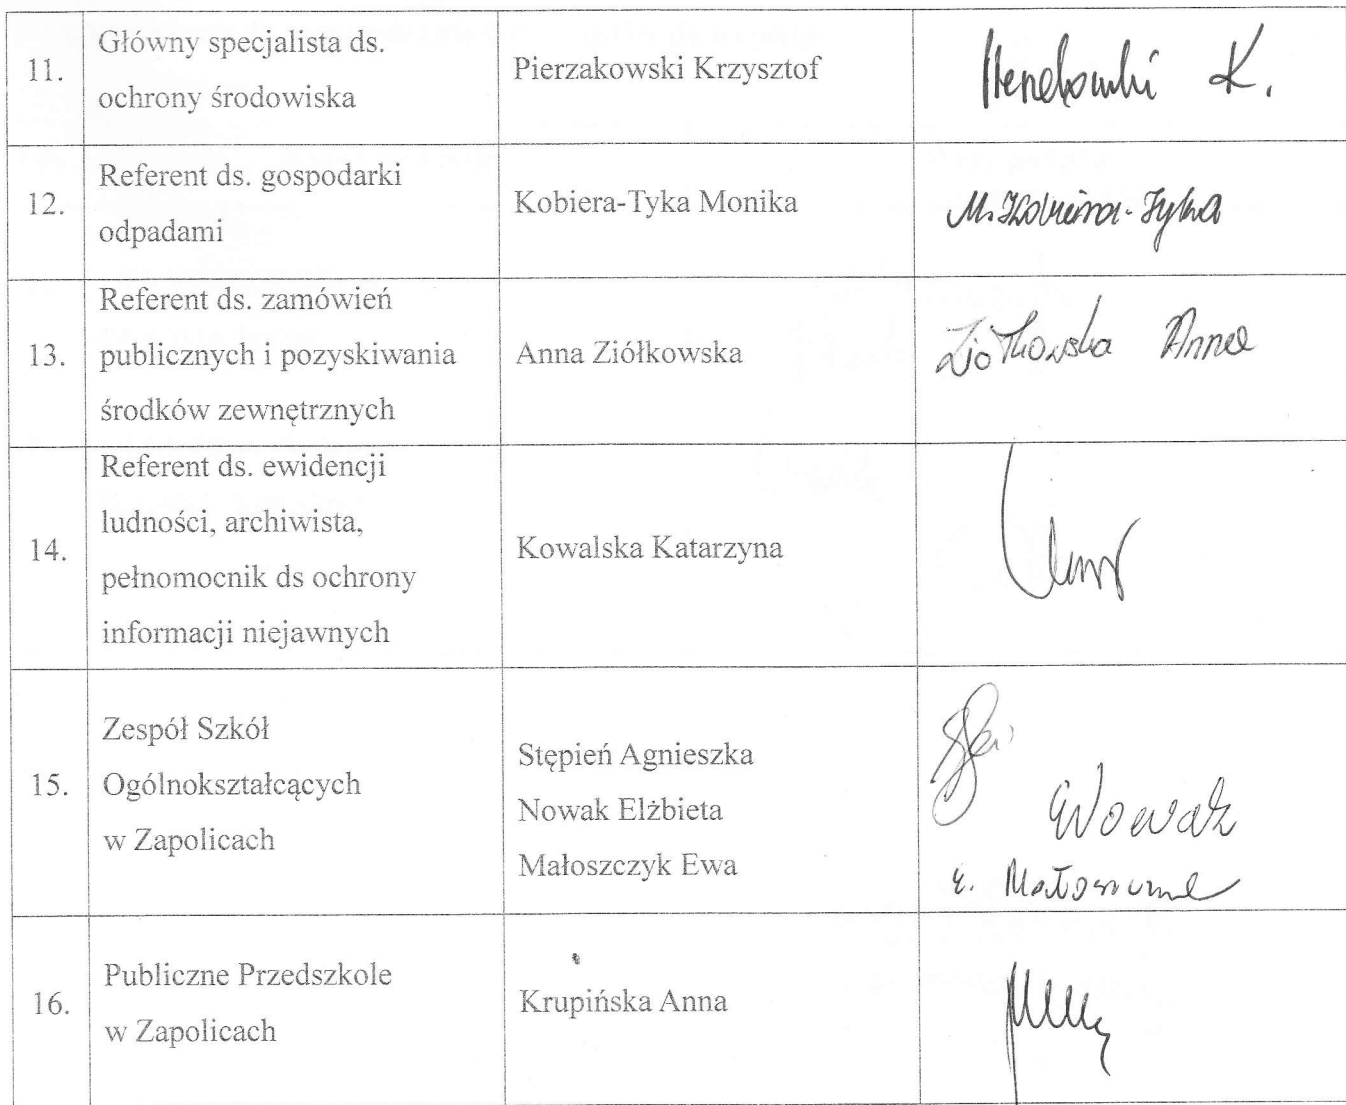 11.
Główny specjalista ds.
ochrony środowiska
Pierzakowski Krzysztof
K.
12.
Referent ds. gospodarki
odpadami
Kobiera-Tyka Monika
M. Kobiera-Tyka
13.
Referent ds. zamówień
publicznych i pozyskiwania
środków zewnętrznych
Anna Ziółkowska
Ziółkowska Anna
14.
Referent ds. ewidencji
ludności, archiwista,
pełnomocnik ds ochrony
informacji niejawnych
Kowalska Katarzyna
15.
Zespół Szkół
Ogólnokształcących
w Zapolicach
Stępień Agnieszka
Nowak Elżbieta
Małoszczyk Ewa
ENowak
E.
16.
Publiczne Przedszkole
w Zapolicach
Krupińska Anna